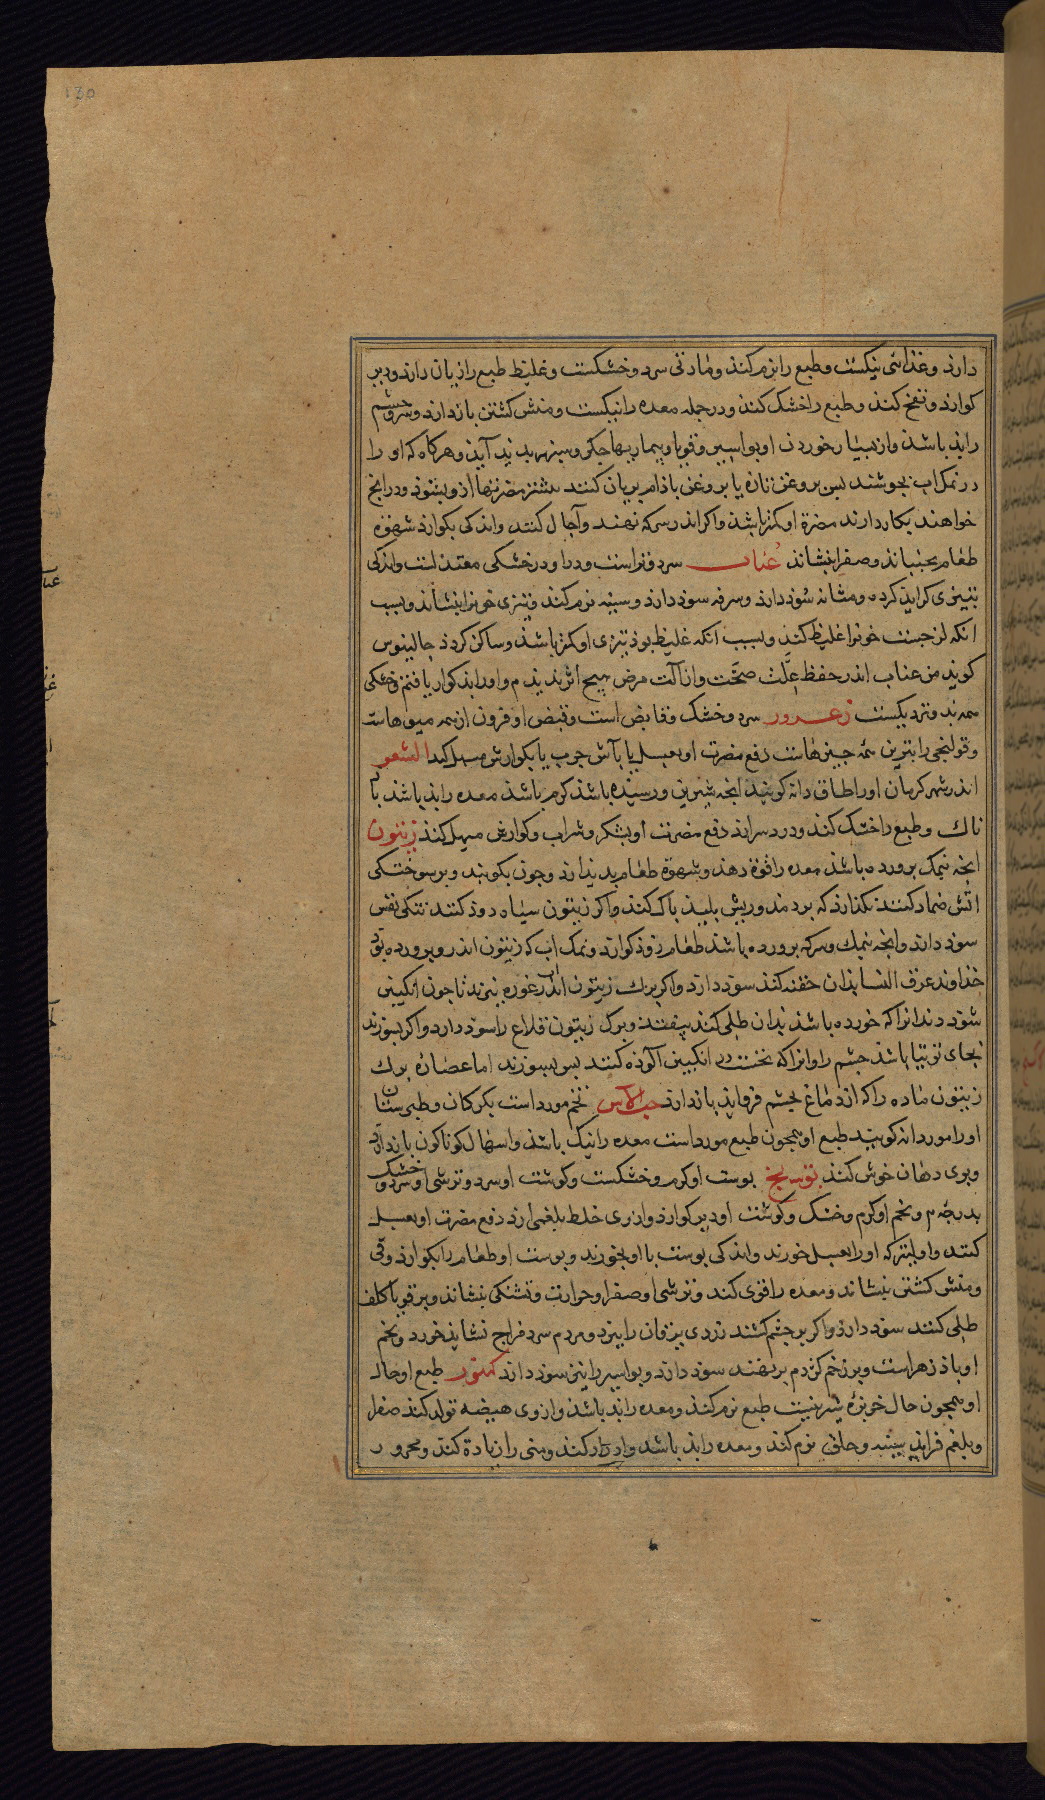 130
دارد و غذائی نیکست و طبع را نرم کند و مادتی سرد و خشکست و غلیظ طبع را زیان دارد و دیر
کوارد و نفخ کند و طبع را خشک کند و در جمله معده را نیکست و منش کشتن باز دارد و سر و چشم
را بد باشد و از بسیار خوردن او بواسیر و قوبا و بیماریها جکر و سپرز بدید آید و هرکاه که او را
در نمک اب بجوشند بس بروغن تازه یا بروغن باذام بریان کنند بیشتر مضرتها ازو بشود و در انج
خواهند بکار دارند مضرة او کمتر باشد و اکر اندر سرکه نهند و آجال کنند و اندکی بکوارد شهوة
طعام بجنباند و صفرا بنشاند عناب سرد و تر است و در او در خشکی معتدلست و اندکی
بتیزی کراید کرده و مثانه سود دارد و سرفه سود دارد و سینه نرم کند و تیزی خونرا بنشاند و بسبب
انکه لزجست خونرا غلیظ کند و بسبب انکه غلیظ بود تیزی او کمتر باشد و ساکن کردد جالینوس
کوید من عناب اندر حفظ علت صحت و از آلت مرض هیچ اثر ندیدم و او را بد کوار یافتم و خشکی
سمه بد و نزدیکست زعرور سرد و خشک و قابض است و قبض او فزون از همه میوهاست
و قولنجی را بترین همه جیزهاست دفع مضرت او بعسل یا بآش جرب یا بکوارش مسهل کند الشعر
اندر شهر کرمان او را طاق دانه کویند انجه شیرین و رسیده باشد کرم باشد معده را بد باشد با
ناک و طبع را خشک کند و درد سر ارد دفع مضرتت او بشکر و شراب و کوارش مسهل کند زیتون
انجه بنمک برورده باشد معده را قوة دهد و شهوة طعام بدید ارد و جون بکوبند و بر سوختکی
اتش ضماد کنند نکذارد که بردمد و ریش بلید باک کند و اکر زیتون سیاه دود کنند تنکی نفس
سود دارد و انجه بنمک و سرکه برورده باشد طعام زود کوارد و نمک اب که زیتون اندرو برورده بود
خداوند عرق النسا بدان حقنه کند سود دارد و اکر برک زیتون اندر اب غوره ببزند تا جون انکبین
شود دندانرا که خورده باشد بدان طلی کنند بیفتد و برک زیتون قلاع را سود دارد و اکر بسوزند
بجای توتیا باشد جشم را و انرا که نخست در انکبین آلوده کنند بس بسوزند اما عصاره برک
زیتون ماده را که از دماغ بجشم فرو آید باز دارد حب الآس تخم مورد است بکرکان و طبرستان
او را موردانه کویند طبع او همجون طبع مورد است معده را نیک باشد و اسهال کوناکون باز دارد
و بوی دهان خوش کند بوست او کرم و خشکست و کوشت او سرد و ترشی او سرد و خشک
بدرجه م و تخم او کرم و خشک و کوشت او دیر کوارد و از وی خلط بلغمی ارد دفع مضرت او بعسل
کنند و اولیتر که او را بعسل خورند و اندکی بوست با او بخورند و بوست او طعام را بکوارد وقی
و منش کشتن بنشاند و معده را قوی کند و ترشی او صفرا و حرارت و تشنکی بنشاند و بر قوبا و کلف
طلی کنند سود دارد و اکر بر جشم کشند زردی یرقان را ببرد و مردم سرد مزاج نشاید خورد و تخم
او باذ زهر است و بر زخم کزدم بر نهند سود دارد و بواسیر را نیز سود دارد طبع او حال
او همجون حال خوبزۀ شیرینست طبع نرم کند و معده را بد باشد و از وی هیضه تولد کند صفرا
و بلغم فزاید سینه و حلق نرم کند و معده را بد باشد و ادرار کند و منی را زیادة کند و محرور